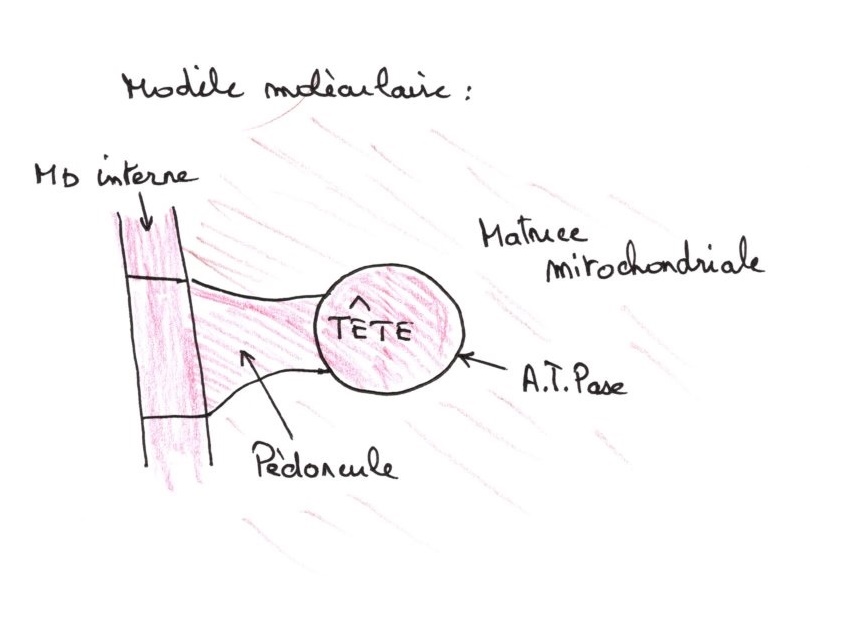 Modèle moléculaire :
Mb interne
Matrice
mitochondriale
TÊTE
A.T.Pase
Pédoncule